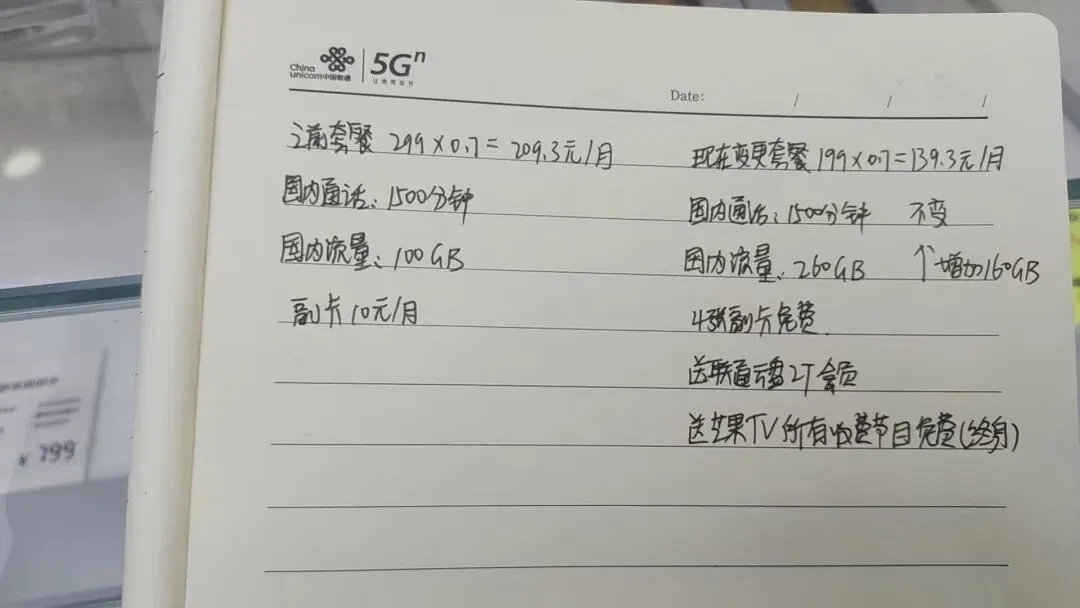 China
unicom中国联通
5Gⁿ
让未来生长
Date: / / /
之前套餐 299×0.7=209.3元/月
现在变更套餐 199×0.7=139.3元/月
国内通话：1500分钟
国内通话：1500分钟 不变
国内流量：100GB
国内流量：260GB ↑增加160GB
副卡10元/月
4张副卡免费.
送联通云盘2T会员
送芒果TV所有收费节目免费(终身)
¥799